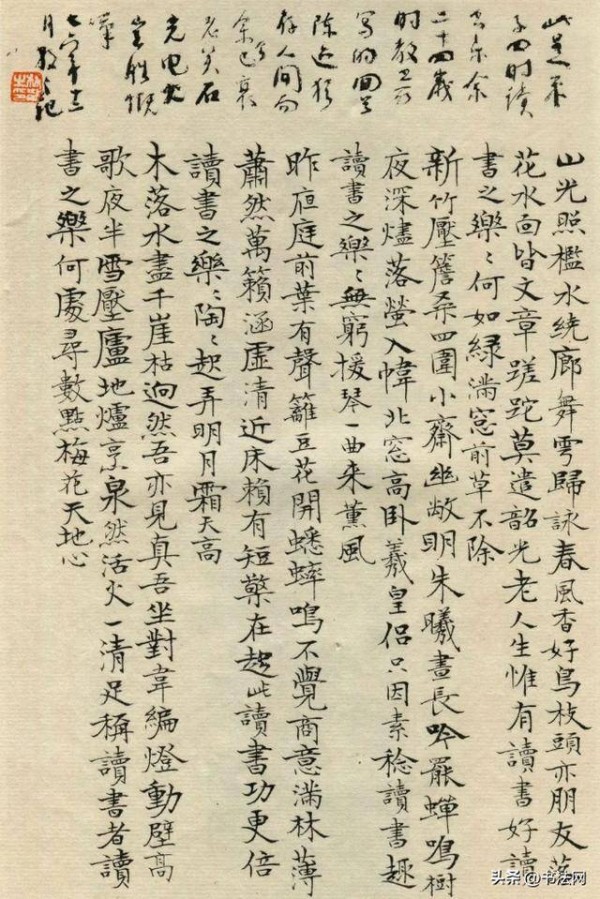 此是朱
子四时读
书乐余
二十四歲
时教
写的回首
陈迹犹
存人间而
余已衰
老矣石
光电火
岂胜慨
嘆
七六年十二
月散之记
山光照檻水绕廊舞雩歸詠春風香好鳥枝頭亦朋友落
花水面皆文章蹉跎莫遣韶光老人生惟有讀書好讀
書之樂〻何如緑滿窓前草不除
新竹壓簷桑四圍小齋幽敞明朱曦晝長吟罷蟬鳴樹
夜深燼落螢入幃北窓高卧羲皇侣只因素稔讀書趣
讀書之樂〻無窮援琴一曲来薰風
昨夜庭前葉有聲籬豆花開蟋蟀鳴不覺商意滿林薄
蕭然萬籟涵虚清近床賴有短檠在趂此讀書功更倍
讀書之樂〻陶〻起弄明月霜天高
木落水盡千崖枯迥然吾亦見真吾坐對韋編燈動壁高
歌夜半雪壓廬地爐烹泉然活火一清足稱讀書者讀
書之樂何處尋數點梅花天地心
头条@书法网